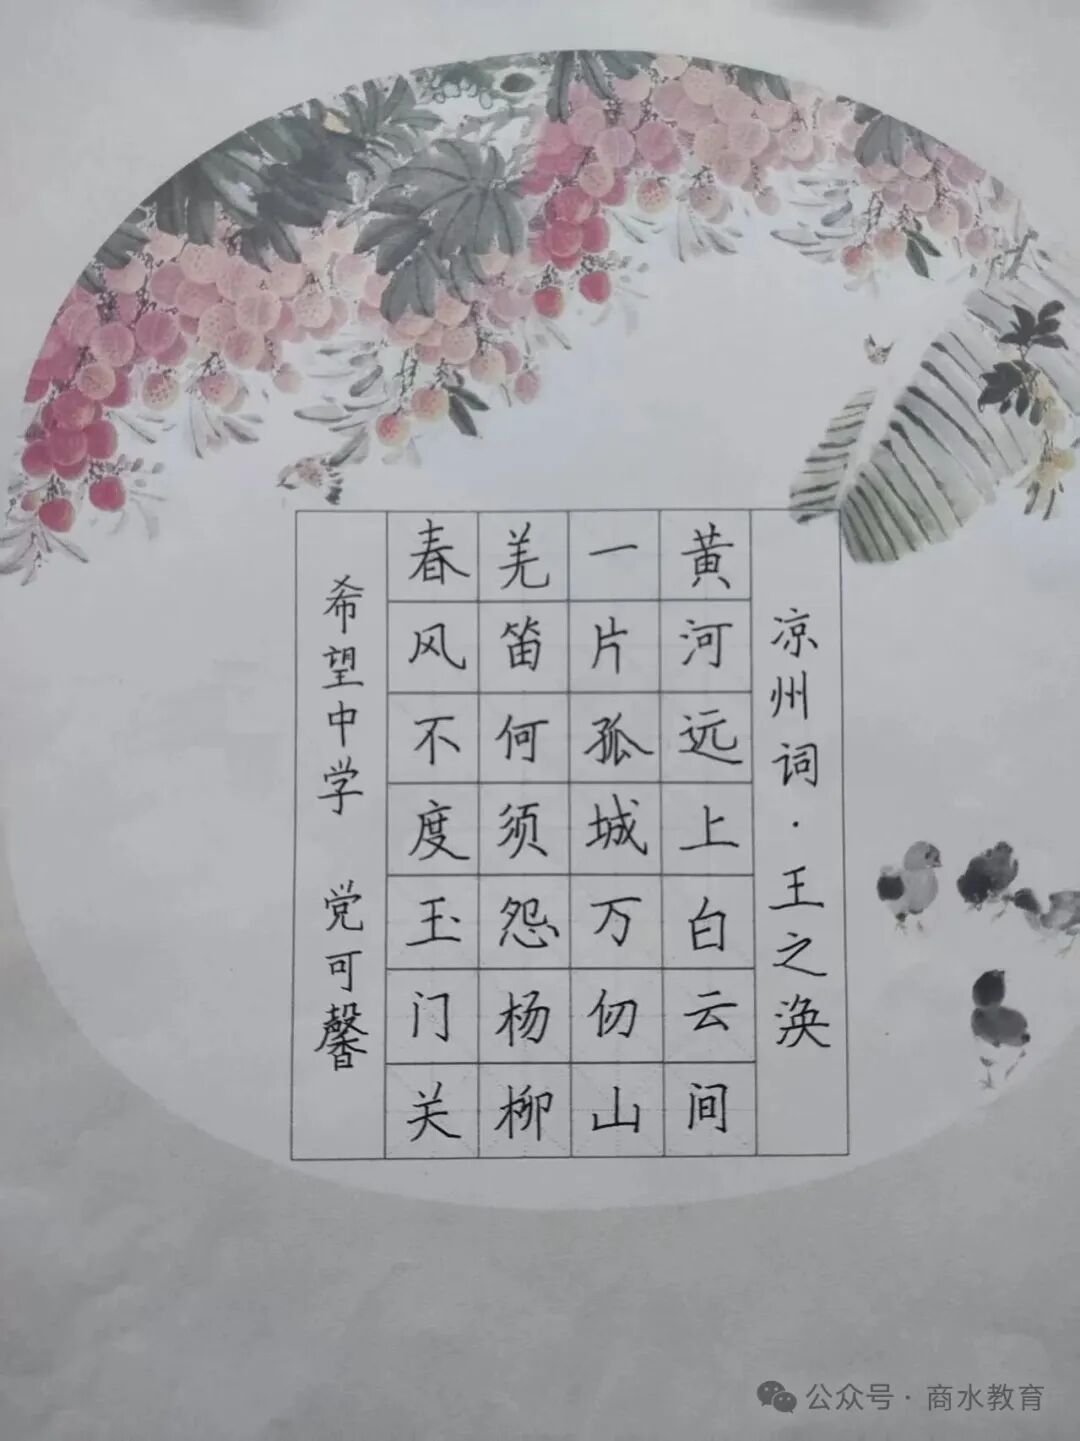 凉州词·王之涣
黄河远上白云间
一片孤城万仞山
羌笛何须怨杨柳
春风不度玉门关
希望中学 党可馨
公众号·商水教育